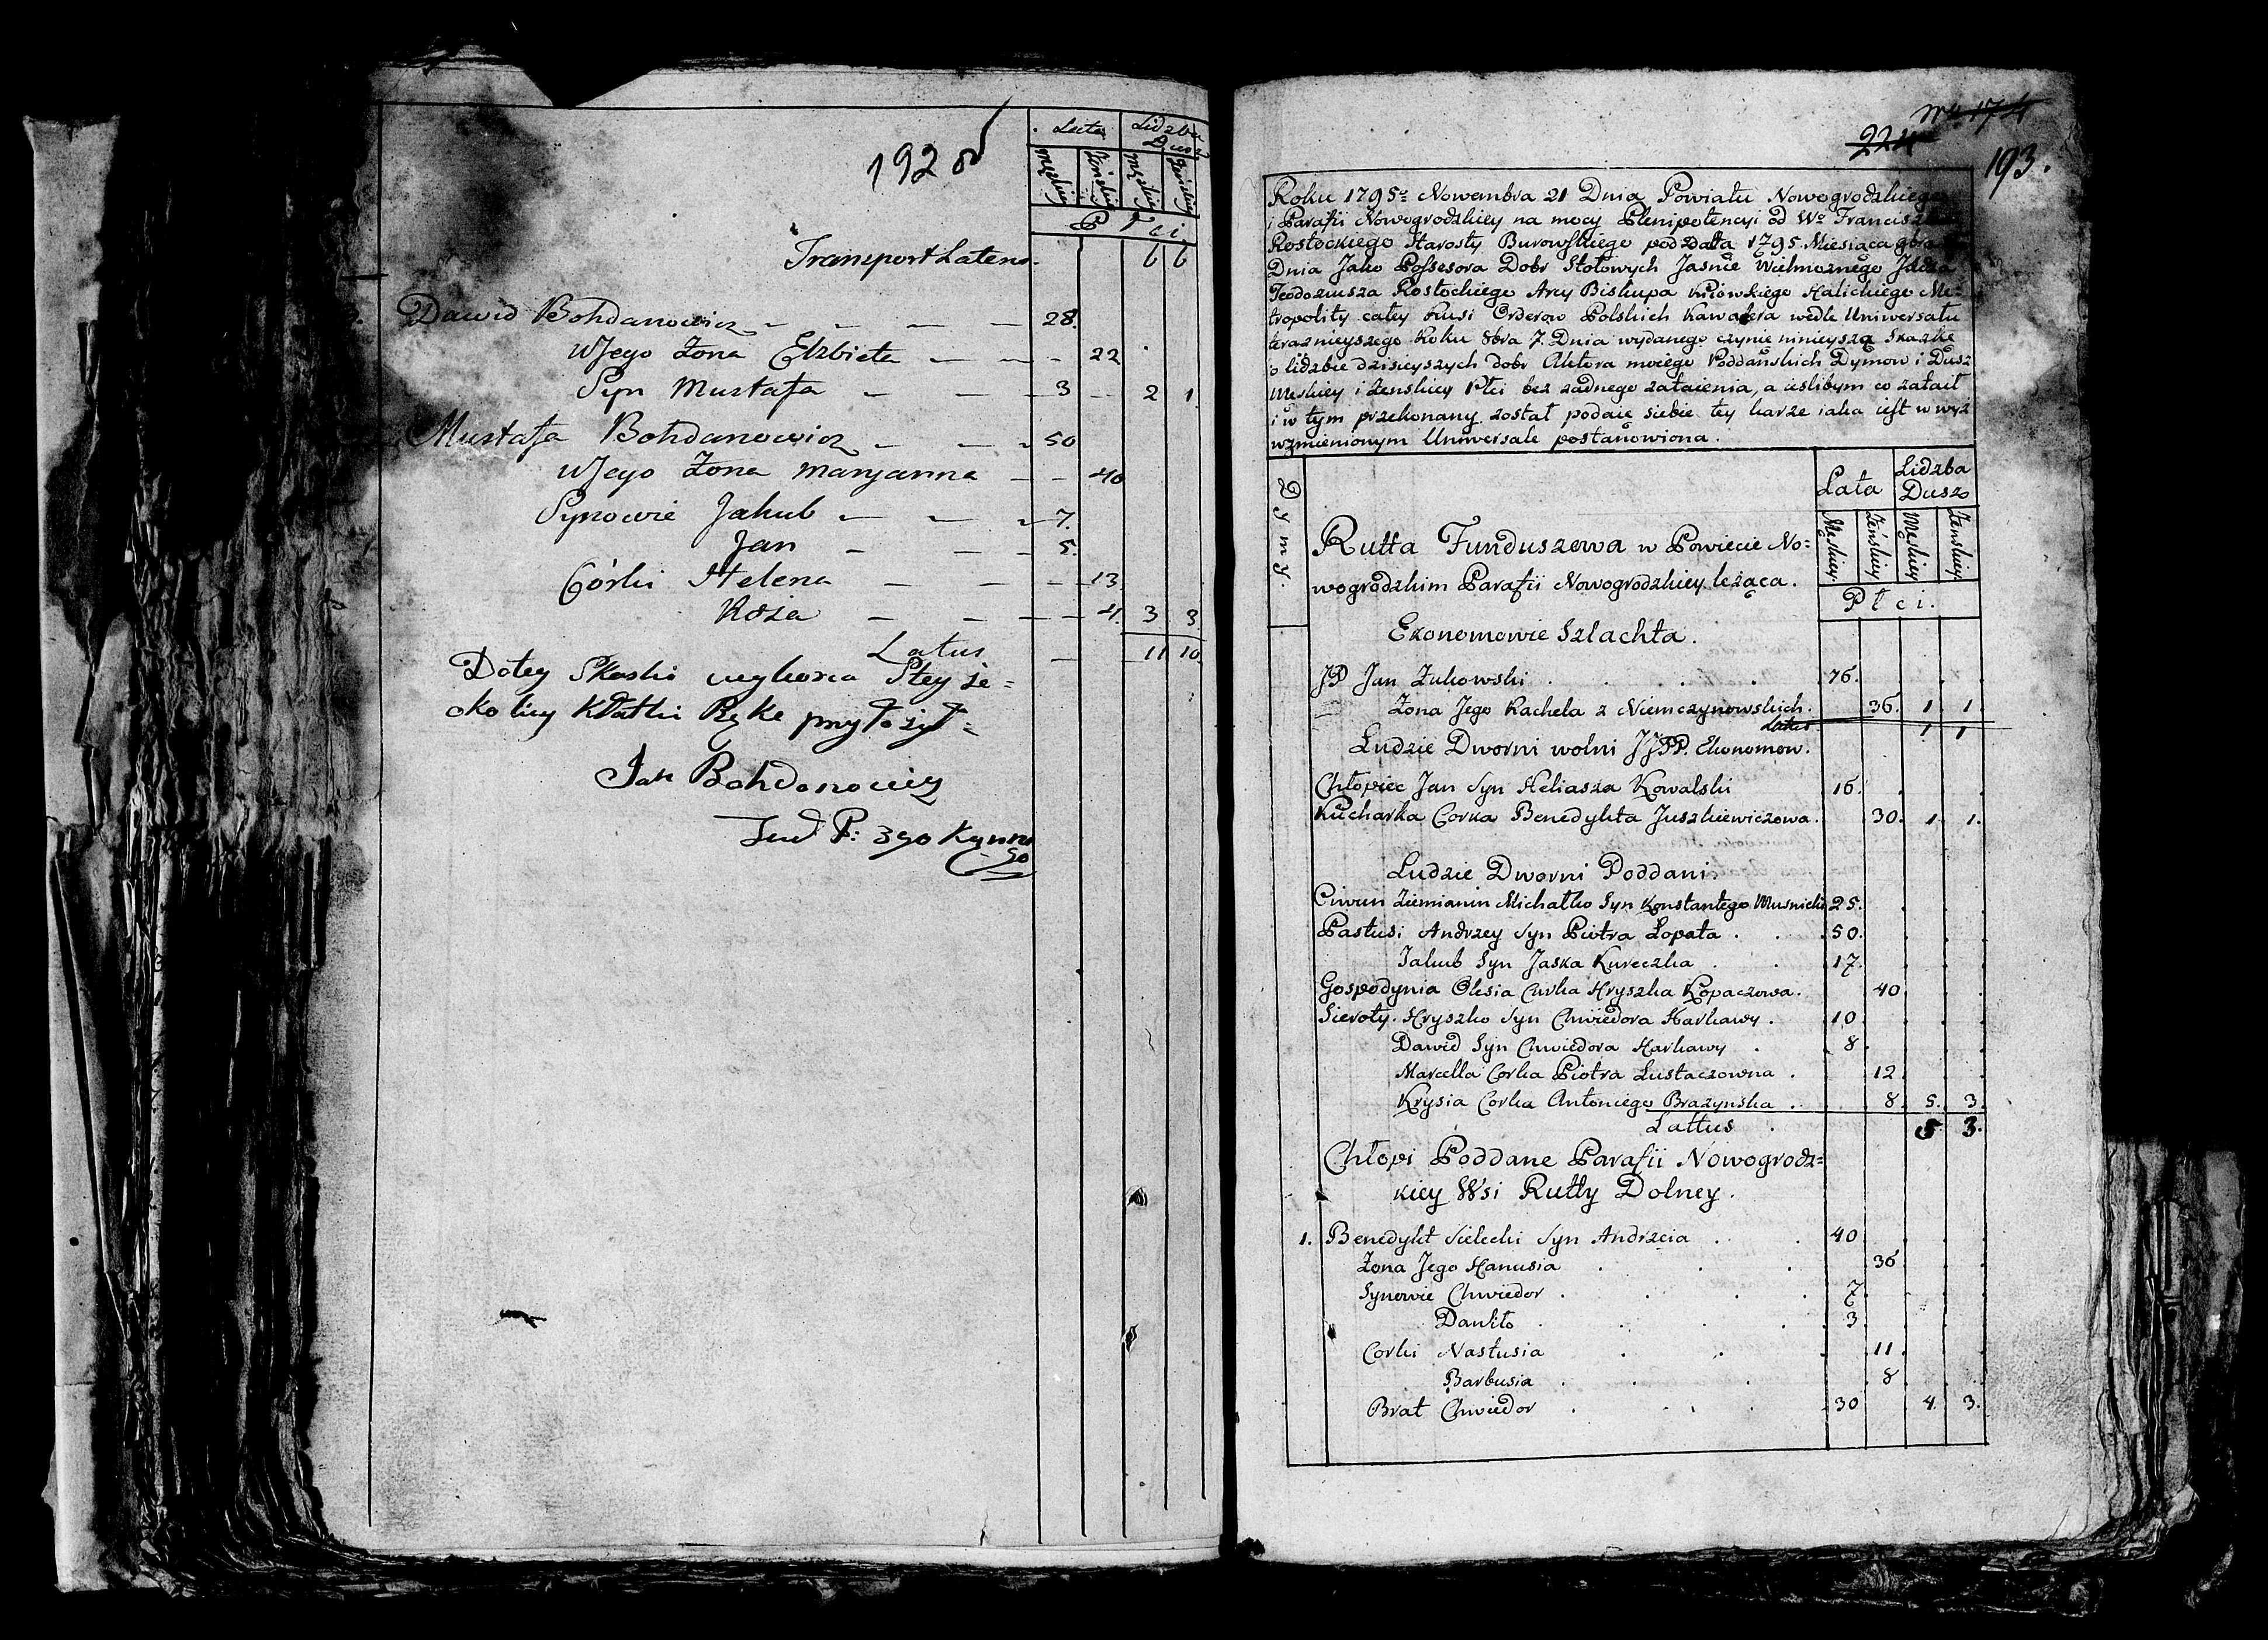 192 od
Lata Lidzba Dusz
Męskiey Żeńskiey Męskiey Żeńskiey
Płci
Transport Latens 6 6
Dawid Bohdanowicz 28.
Wjego Żona Elżbieta 22
Syn Mustafa 3 2 1
Mustafa Bohdanowicz 50
Wjego Żona Maryanna 40
Synowie Jakub 7.
Jan 5.
Córki Helena 13
Róża 4. 3 3
Latus 11 10
Dotey Skaski
okolicy Kłatki Rękę przyłożył=
Jan Bohdanowicz
193.
Roku 1795o Nowembra 21 Dnia Powiatu Nowogrodzkiego
i Parafii Nowogrodzkiey na mocy Plenipotencyi od Wo
Rostockiego Starosty Burowskiego pod data 1795 Miesiąca
Dnia Jako Possesora Dobr Stołowych Jasnie Wielmoznego
Teodoziusza Rostockiego Arcy Biskupa Kiiowskiego Halickiego Me=
tropolity całey Rusi Orderow Polskich Kawalera wedle Uniwersału
teraznieyszego Roku 8bra 7. Dnia wydanego czynie ninieyszą Skazkę
o lidzbie dzisieyszych dobr Aktora moiego Poddańskich Dymow i Dusz
Męskiey i żenskiey Płci bez żadnego zataienia, a ieslibym co zataił
i w tym przekonany został podaię siebie tey karze iaka iest w wyż
wzmienionym Uniwersale postanowiona.
Dymy
Lata Lidzba Dusz
Męskiey Żeńskiey Męskiey Żeńskiey
Płci.
Rutta Funduszowa w Powiecie No=
wogrodzkim Parafii Nowogrodzkiey leżąca.
Ekonomowie Szlachta.
JP Jan Żukowski 76.
Żona Jego Rachela z Niemczynowskich. 36. 1. 1
Latus 1 1
Ludzie Dworni wolni JJPP. Ekonomow.
Chłopiec Jan Syn Heliasza Kowalski 16.
Kucharka Corka Benedykta Juszkiewiczowa. 30. 1. 1.
Ludzie Dworni Poddani.
Ciwun Ziemianin Michałko Syn Konstantego Musnicki 25.
Pastusi Andrzey Syn Piotra Łopata 50.
Jakub Syn Jaska Kureczka 17.
Gospodynia Olesia Curka Hryszka Kopaczowa. 40
Sieroty. Hryszko Syn Chwiedora Harkawy. 10
Dawid Syn Chwiedora Harkawy 8
Marcella Corka Piotra Łustaczowna. 12
Krysia Corka Antoniego Brazynska 8 5. 3.
Lattus 5 3.
Chłopi Poddane Parafii Nowogrodz=
kiey Wsi Rutty Dolney.
1. Benedykt Sielecki Syn Andrzeia 40
Żona Jego Hanusia 36
Synowie Chwiedor 7
Daniło 3
Corki Nastusia 11
Barbusia 8
Brat Chwiedor 30 4. 3.